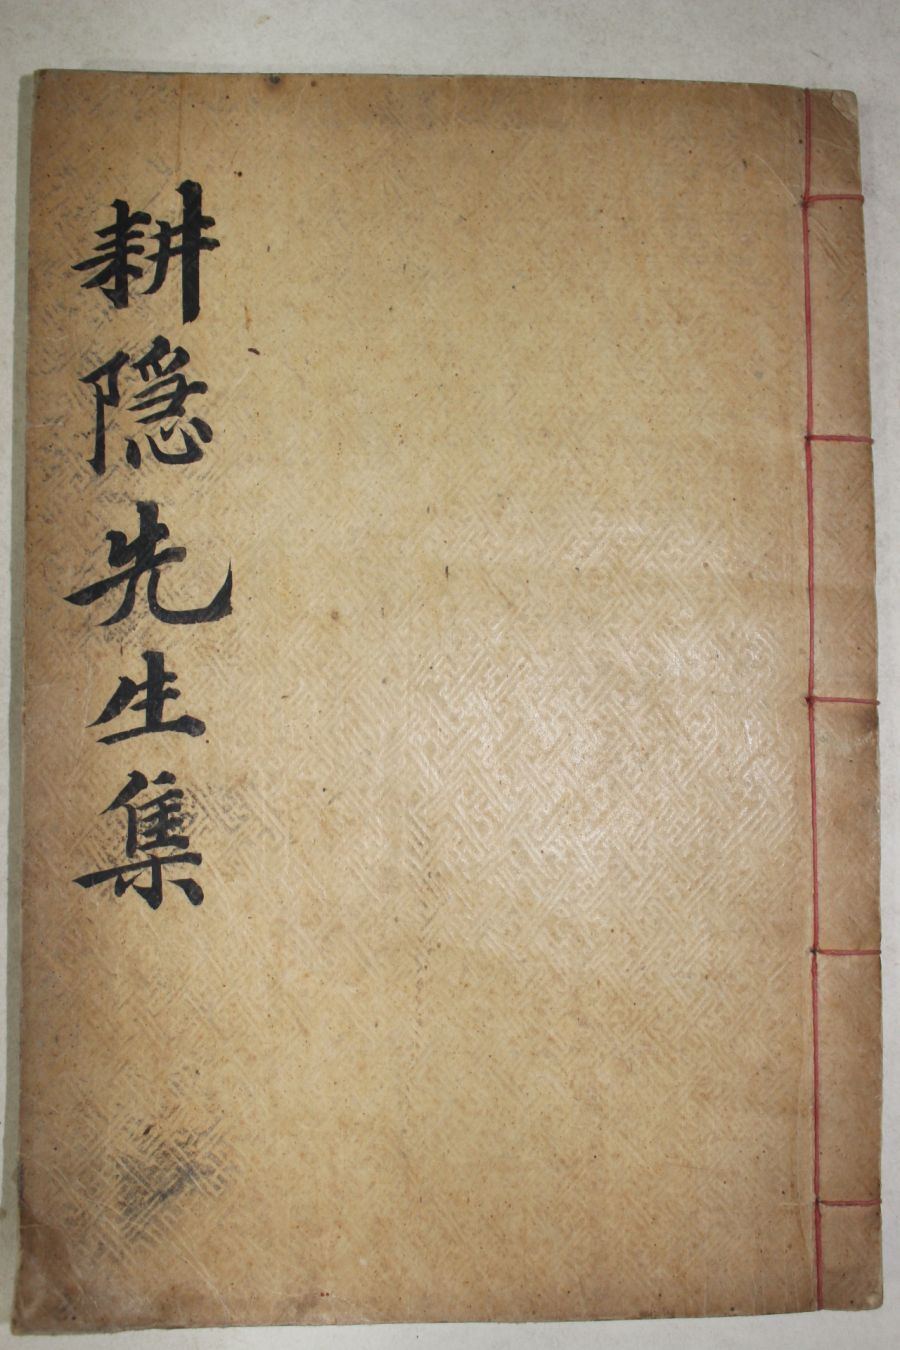 耕隠先生集